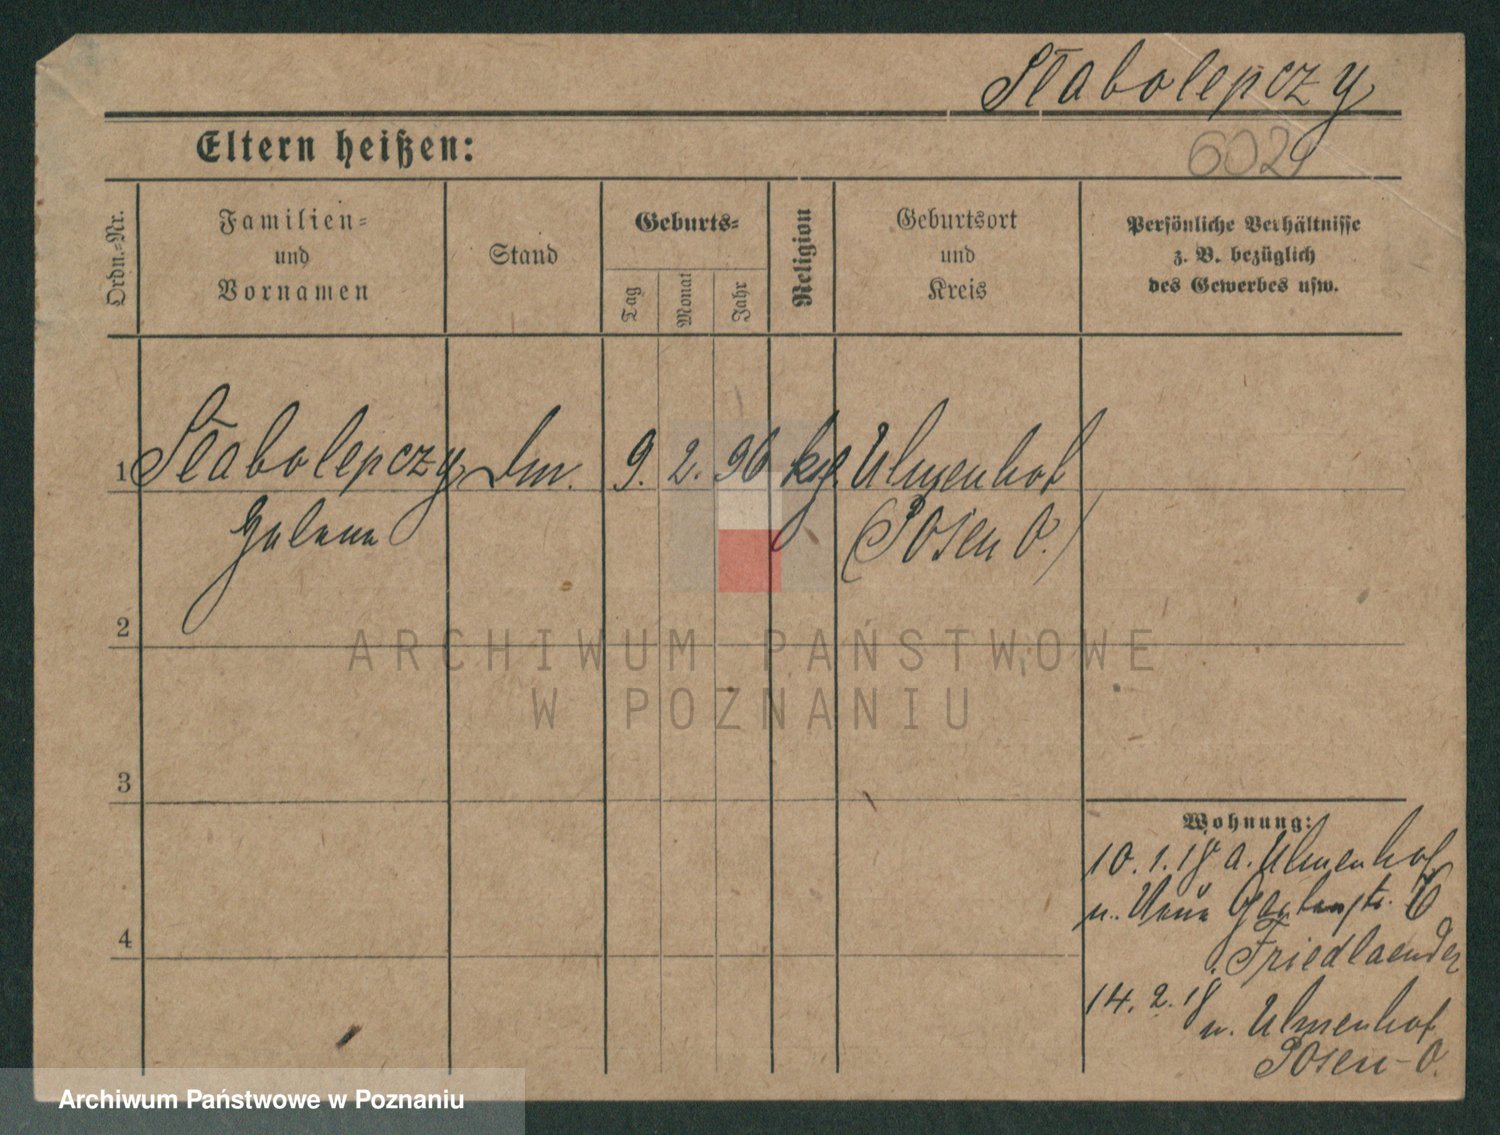 Słabolepczy
6029
Eltern heißen:
Ordn.-Nr.
Familien-
und
Vornamen
Stand
Geburts-
Tag
Monat
Jahr
Religion
Geburtsort
und
Kreis
Persönliche Verhältnisse
z. B. bezüglich
des Gewerbes usw.
1 Słabolepczy Dm. 9. 2. 96 kg. Ulmenhof
Helena (Posen O.)
2
3
4
Wohnung:
10. 1. 18 a. Ulmenhof
n. Neue Gartenstr. 6
Friedlaender
14. 2. 18
n. Ulmenhof
Posen-O.
ARCHIWUM PAŃSTWOWE
W POZNANIU
Archiwum Państwowe w Poznaniu